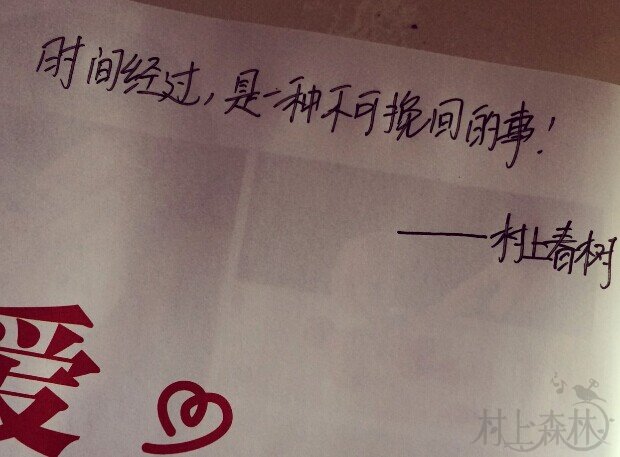 时间经过，是一种不可挽间的事！
——村上春树
爱
村上森林